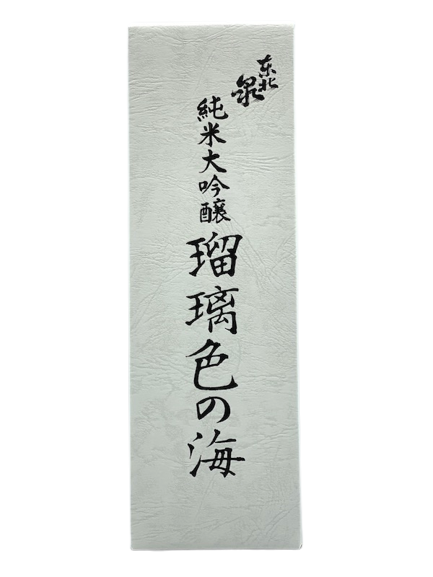 東北泉
純米大吟醸
瑠璃色の海